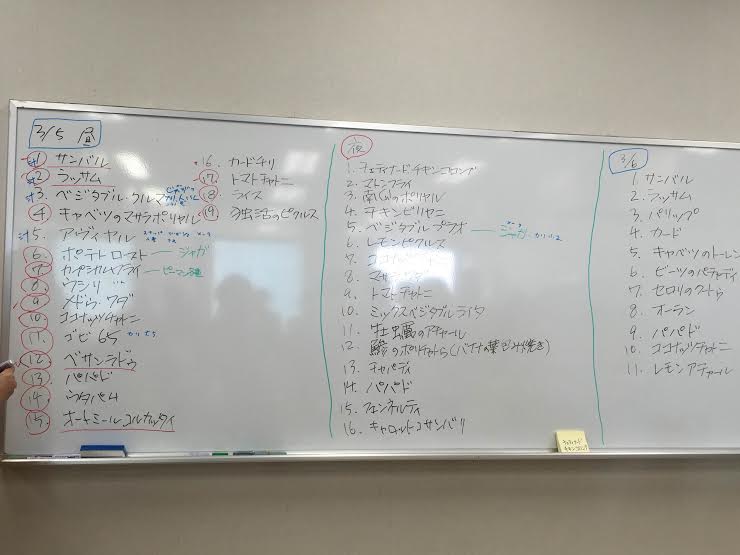 3/5 昼
1 サンバル
2 ラッサム
3. ベジタブル・クルマ
4 キャベツのマサラポリヤル
5. アヴィヤル
6. ポテトロースト ジャガ
7. カプシカムフライ ピーマン
8. ウンリ
9. メドゥ・ワダ
10 ココナッツチャトニ
11. ゴビ 65
12. ベサンラドゥ
13. パパド
14. ウタパム
15. オートミールコルカッタイ
16. カードチリ
17 トマトチャトニ
18. ライス
19 独活のピクルス
夜
1. チェティナードチキン
2. マトンフライ
3. 南Curryのポリヤル
4. チキンビリヤニ
5. ベジタブルプラオ ジャガ
6. レモンピクルス
7. ココナッツ
8. マサラ
9. トマトチャトニ
10. ミックスベジタブルライタ
11. 牡蠣のアチャール
12. のポリチャトゥ(バナナの葉包み焼き)
13. チャパティ
14. パパド
15. フェンネルティ
16. キャロットコサンバリ
3/6
1. サンバル
2. ラッサム
3. パリップ
4. カード
5. キャベツのトーレン
6. ビーツのパチャディ
7. セロリのクートゥ
8. オーラン
9. パパド
10. ココナッツチャトニ
11. レモンアチャール